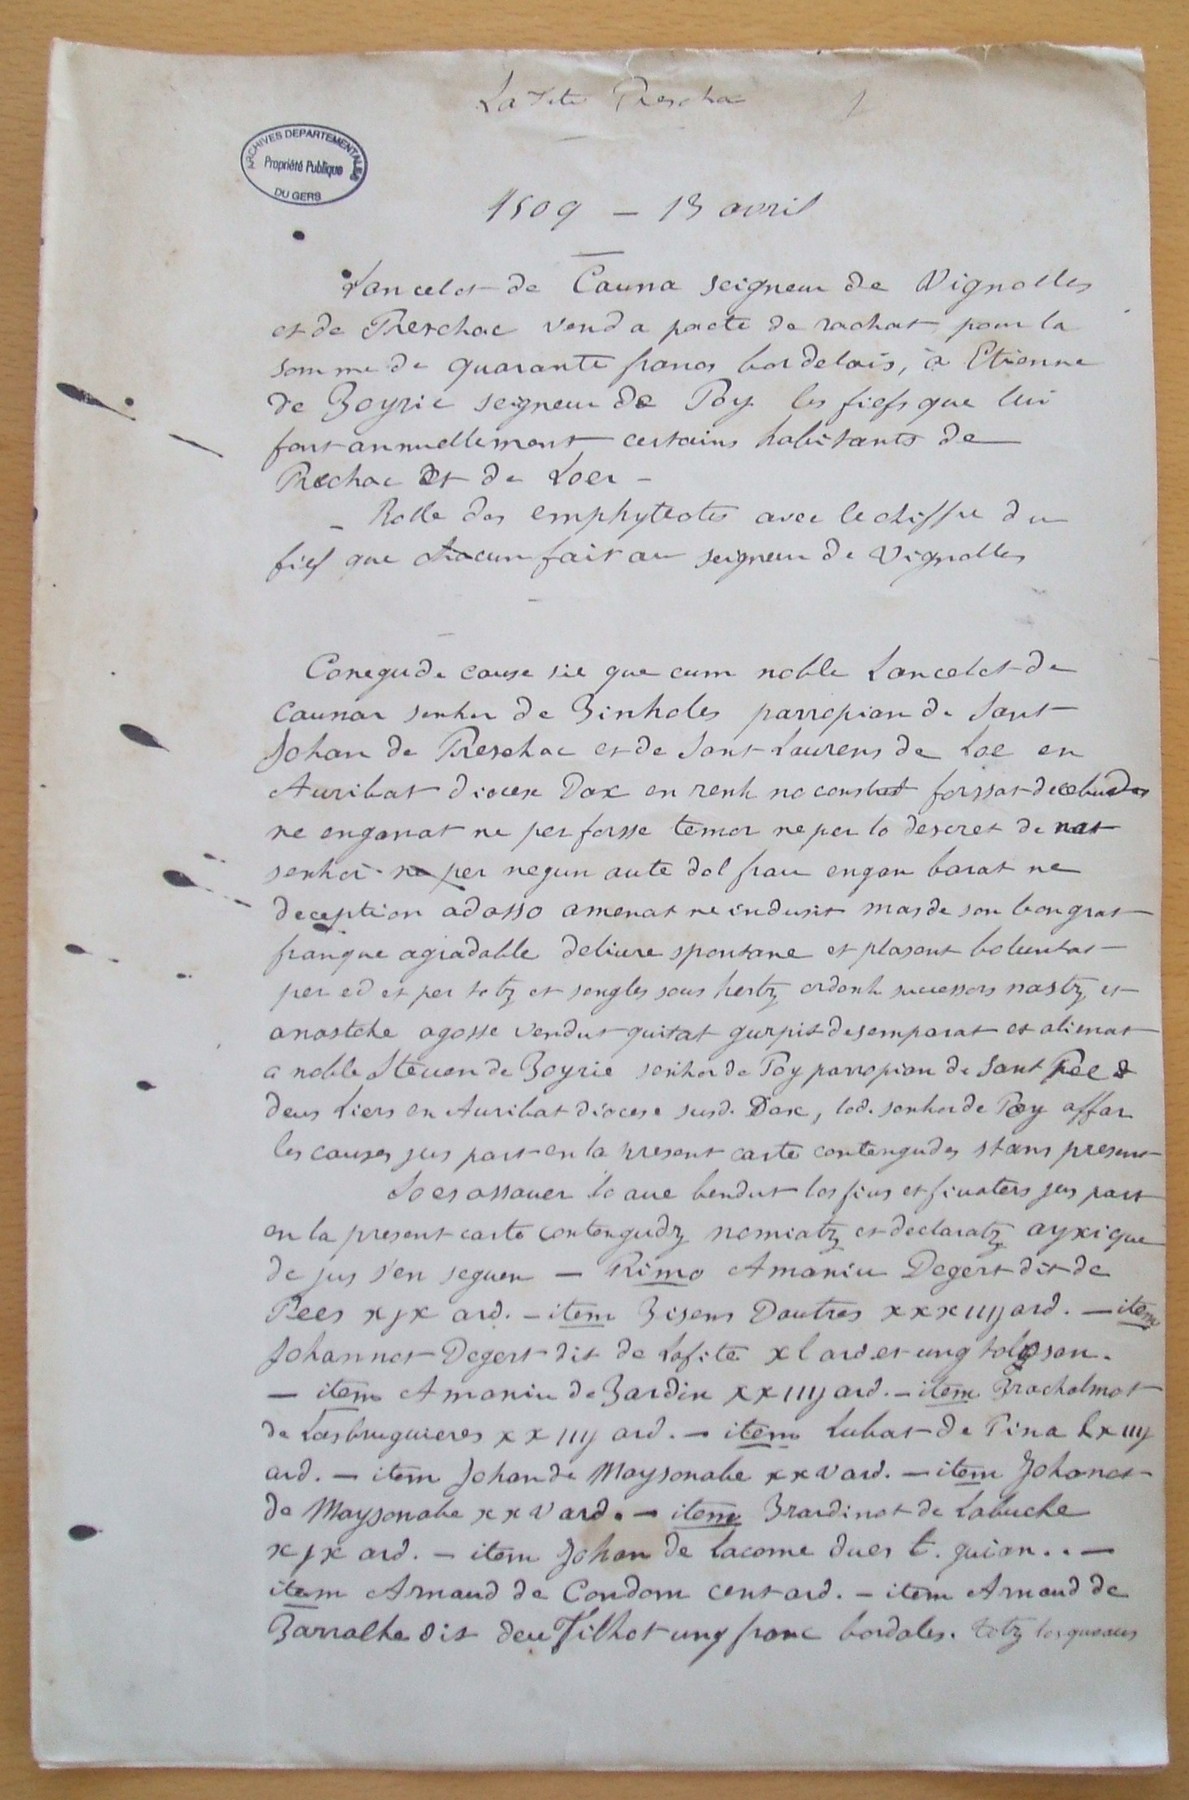 La fite Preschac 1
ARCHIVES DEPARTEMENTALES
Propriété Publique
DU GERS
1509 — 13 avril
Lancelot de Cauna seigneur de Vignolles
et de Preschac vend a pacte de rachat pour la
somme de quarante francs bordelais, à Etienne
de Boyrie seigneur de Poy les fiefs que lui
font annuellement certains habitants de
Prechac et de Loer —
— Rolle des emphyteotes avec le chiffre du
fief que chacun fait au seigneur de Vignolles
Conegude cause sie que cum noble Lancelot de
Caunar senhor de Binholes parropian de Sant
Johan de Preschac et de Sant Laurens de Loe en
Auribat diocese Dax en renh no constret forssat decebud
ne enganat ne per forsse temor ne per lo decret de nat
senhor ne per negun aute dol frau engan barat ne
deception adasso amenat ne indusit mas de son bon grat
franque agradable deliure spontane et plasent boluntat
per ed et per totz et sengles sous hertz ordenh successors nastz et
anastche agosse vendut quitat gurpit desemparat et alienat
a noble Steuen de Boyrie senhor de Poy parropian de Sant Pee
deus Liers en Auribat diocese susd. Dax, lod. senhor de Poy affar
les causes jus part en la present carte contengudes stans present
So es assauer lo aue bendut los fius et fiuaters jus part
en la present carte contengudz nomiatz et declaratz ayxi que
de jus s'en seguen — Primo Amaniu Degert dit de
Pees xjx ard. — item Bisens Dautres xxxiiij ard. — item
Johannot Degert dit de Lafite xl ard. et ung tolosan.
— item Amaniu de Bardin xxiiij ard. — item Bracholmot
de Lasbruguieres xxiiij ard. — item Lubat de Pina lxiiij
ard. — item Johan de Maysonabe xxv ard. — item Johanot
de Maysonabe xxv ard. — item Brardinot de Labuche
xjx ard. — item Johan de Lacome dues t. guian.. —
item Arnaud de Condom cent ard. — item Arnaud de
Barralhe dit deu Tilhot ung franc bordales. totz losquaus